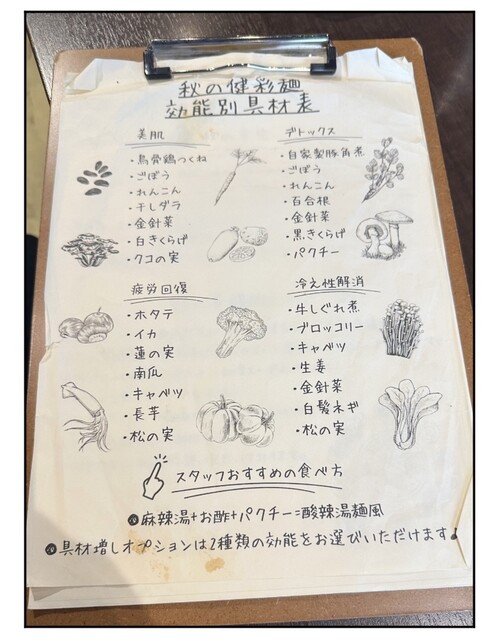 秋の健彩麺
効能別具材表
美肌
・烏骨鶏つくね
・ごぼう
・れんこん
・干しダラ
・金針菜
・白きくらげ
・クコの実
デトックス
・自家製豚角煮
・ごぼう
・れんこん
・百合根
・金針菜
・黒きくらげ
・パクチー
疲労回復
・ホタテ
・イカ
・蓮の実
・南瓜
・キャベツ
・長芋
・松の実
冷え性解消
・牛しぐれ煮
・ブロッコリー
・キャベツ
・生姜
・金針菜
・白髪ネギ
・松の実
スタッフおすすめの食べ方
麻辣湯+お酢+パクチー=酸辣湯麺風
具材増しオプションは2種類の効能をお選びいただけます♪